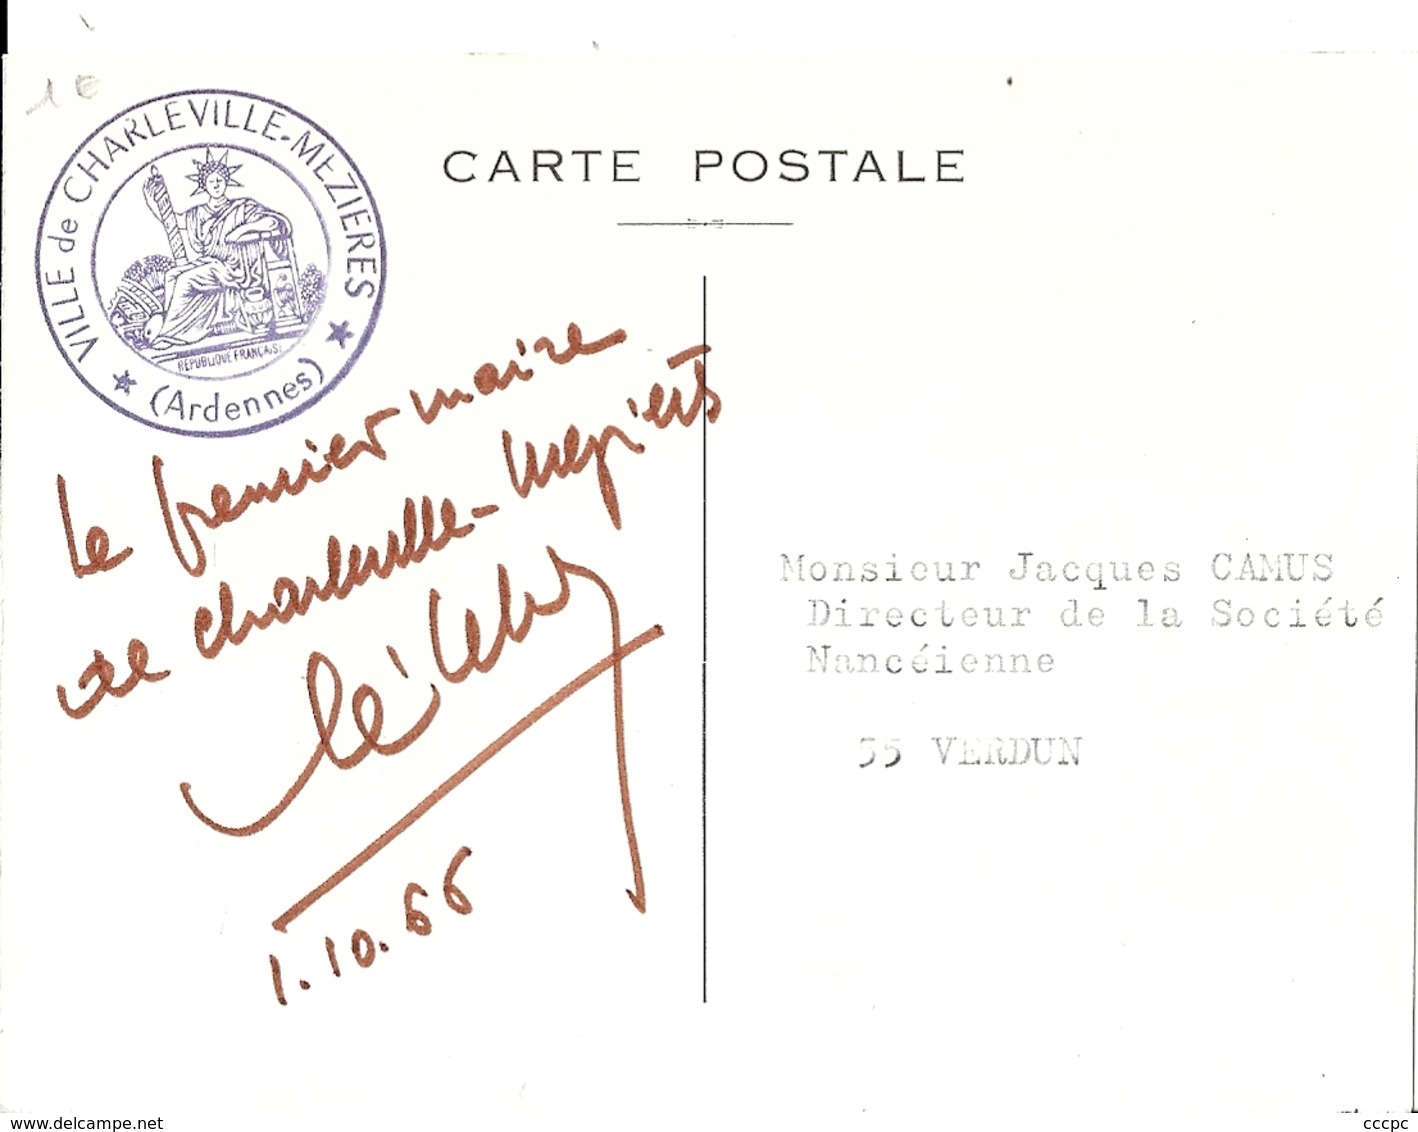 1 €
VILLE de CHARLEVILLE-MEZIERES
(Ardennes)
REPUBLIQUE FRANCAISE
CARTE POSTALE
Le premier maire
de Charleville-Mézières
1.10.66
Monsieur Jacques CAMUS
Directeur de la Société
Nancéienne
55 VERDUN
www.delcampe.net
cccpc